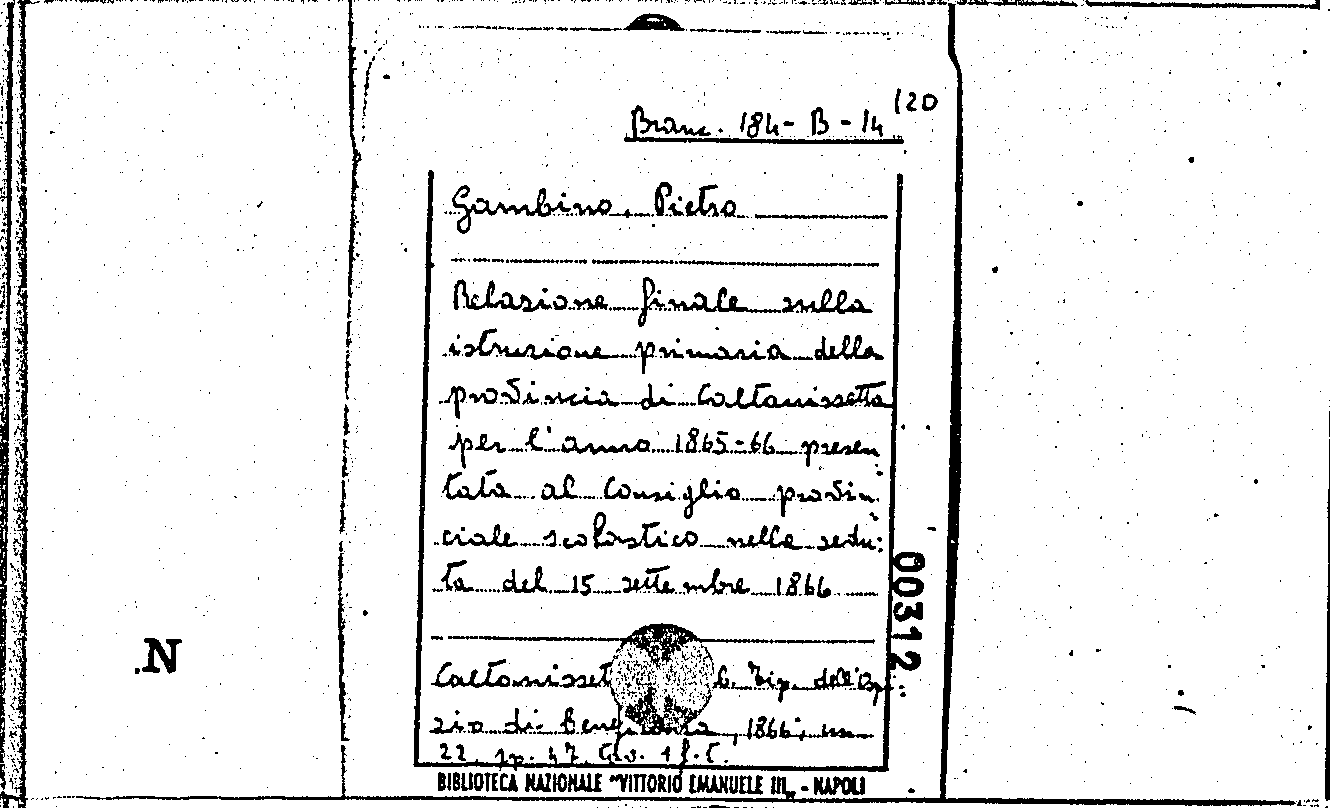 120
Branc. 184-B-14
Gambino, Pietro
Relazione finale sulla
istruzione primaria della
provincia di Caltanissetta
per l'anno 1865-66 presen
tata al Consiglio provin
ciale scolastico nella sedu:
ta del 15 settembre 1866
00312
N
Caltanisset Tip. dell'Ospi:
zio di Beneficenza, 1866; in
22, pp. 47.
BIBLIOTECA NAZIONALE "VITTORIO EMANUELE III„ - NAPOLI